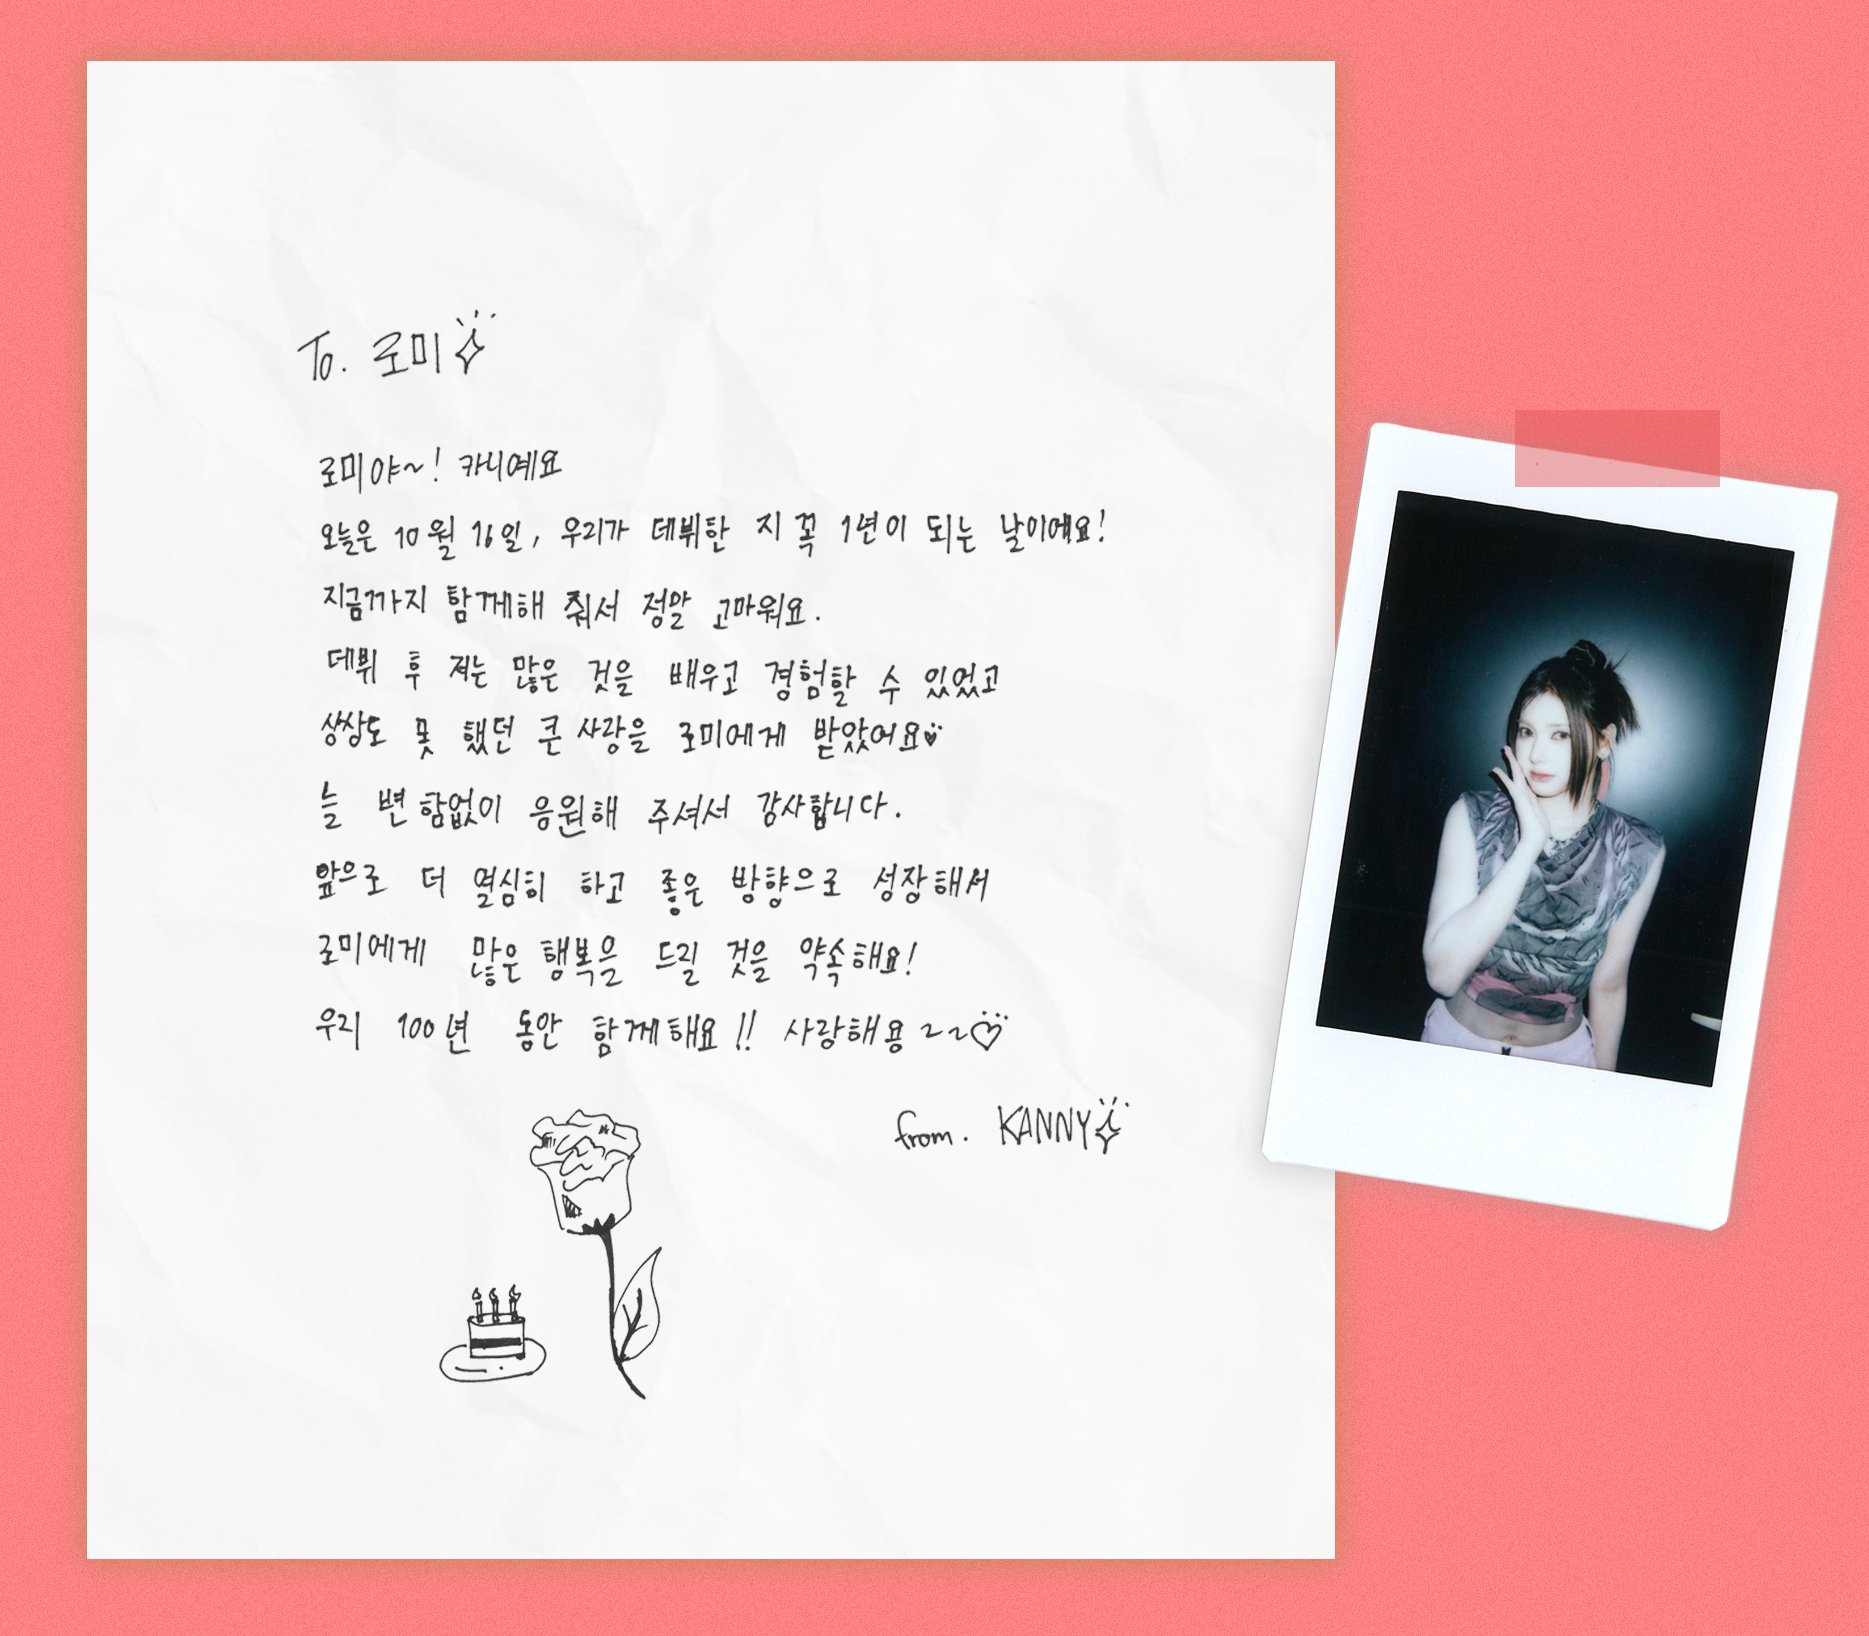 To. 로미
로미야~! 카니예요
오늘은 10월 16일, 우리가 데뷔한 지 꼭 1년이 되는 날이에요!
지금까지 함께해 줘서 정말 고마워요.
데뷔 후 저는 많은 것을 배우고 경험할 수 있었고
상상도 못 했던 큰 사랑을 로미에게 받았어요
늘 변함없이 응원해 주셔서 감사합니다.
앞으로 더 열심히 하고 좋은 방향으로 성장해서
로미에게 많은 행복을 드릴 것을 약속해요!
우리 100년 동안 함께해요!! 사랑해용~~♡
from. KANNY